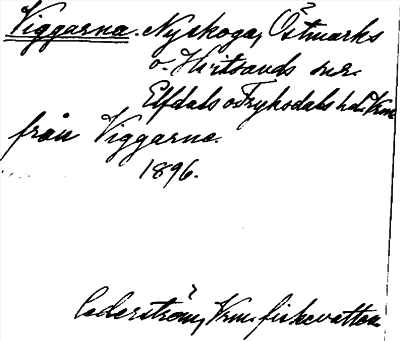 Viggarna. Nyskoga, Östmarks
o. Hvitsands snr.
Elfdals o Fryksdals hd. Vrm
från Viggarna.
1896.
Cederström, Vrm. fiskevatten